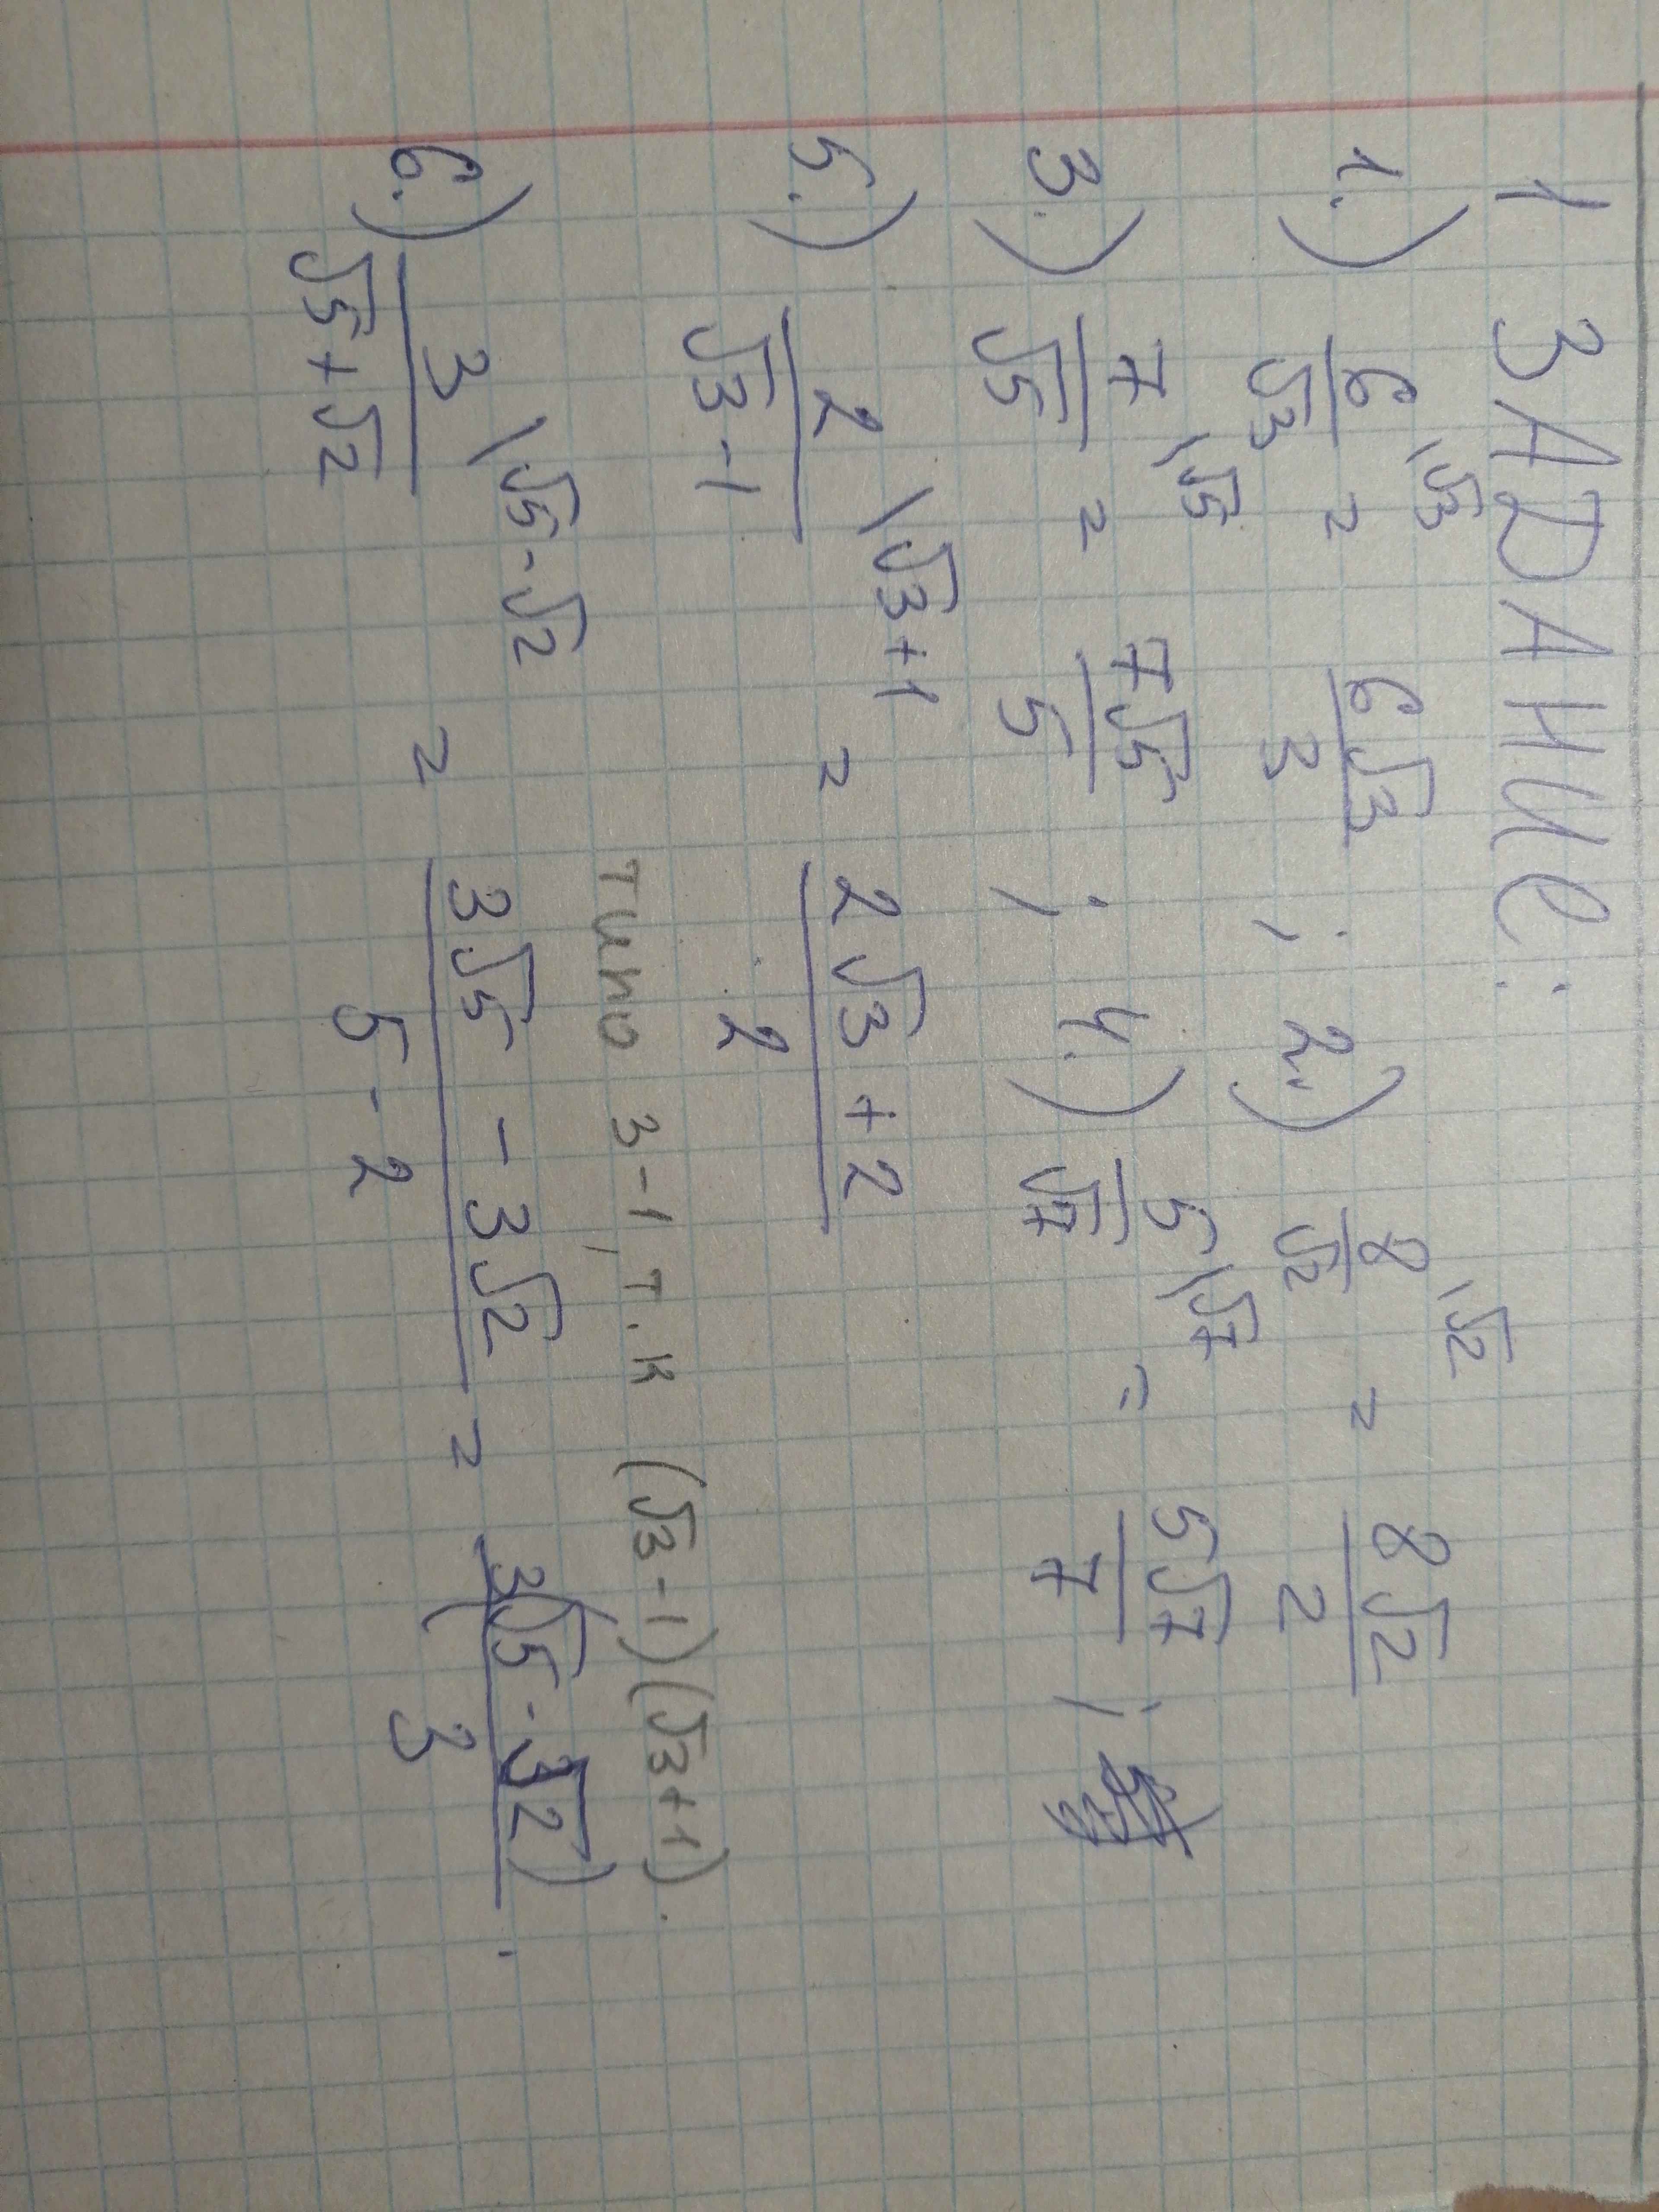 1 ЗАДАНИЕ:
1.) 6/√3 \√3 = 6√3/3 ; 2.) 8/√2 \√2 = 8√2/2
3.) 7/√5 \√5 = 7√5/5 ; 4.) 5/√7 \√7 = 5√7/7 ;
5.) 2/(√3-1) \√3+1 = (2√3+2)/2
типо 3-1, т.к (√3-1)(√3+1).
6.) 3/(√5+√2) \√5-√2 = (3√5-3√2)/(5-2) = 3(√5-√2)/3.